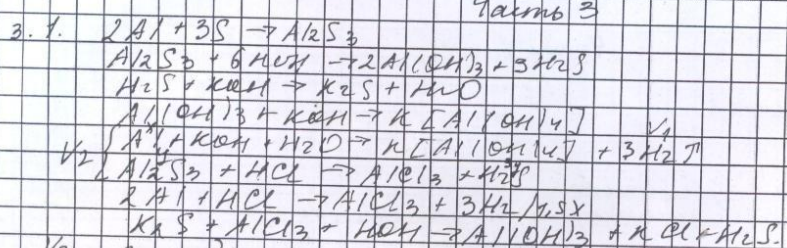 Часть 3
3.1. 2Al + 3S → Al2S3
Al2S3 + 6HOH → 2Al(OH)3 + 3H2S
H2S + KOH → K2S + H2O
Al(OH)3 + KOH → K[Al(OH)4]
V2 { Al + KOH + H2O → K[Al(OH)4] + 3H2↑ V1
Al2S3 + HCl → AlCl3 + H2S
2Al + HCl → AlCl3 + 3H2/1,5x
K2S + AlCl3 + HOH → Al(OH)3 + KCl + H2S.